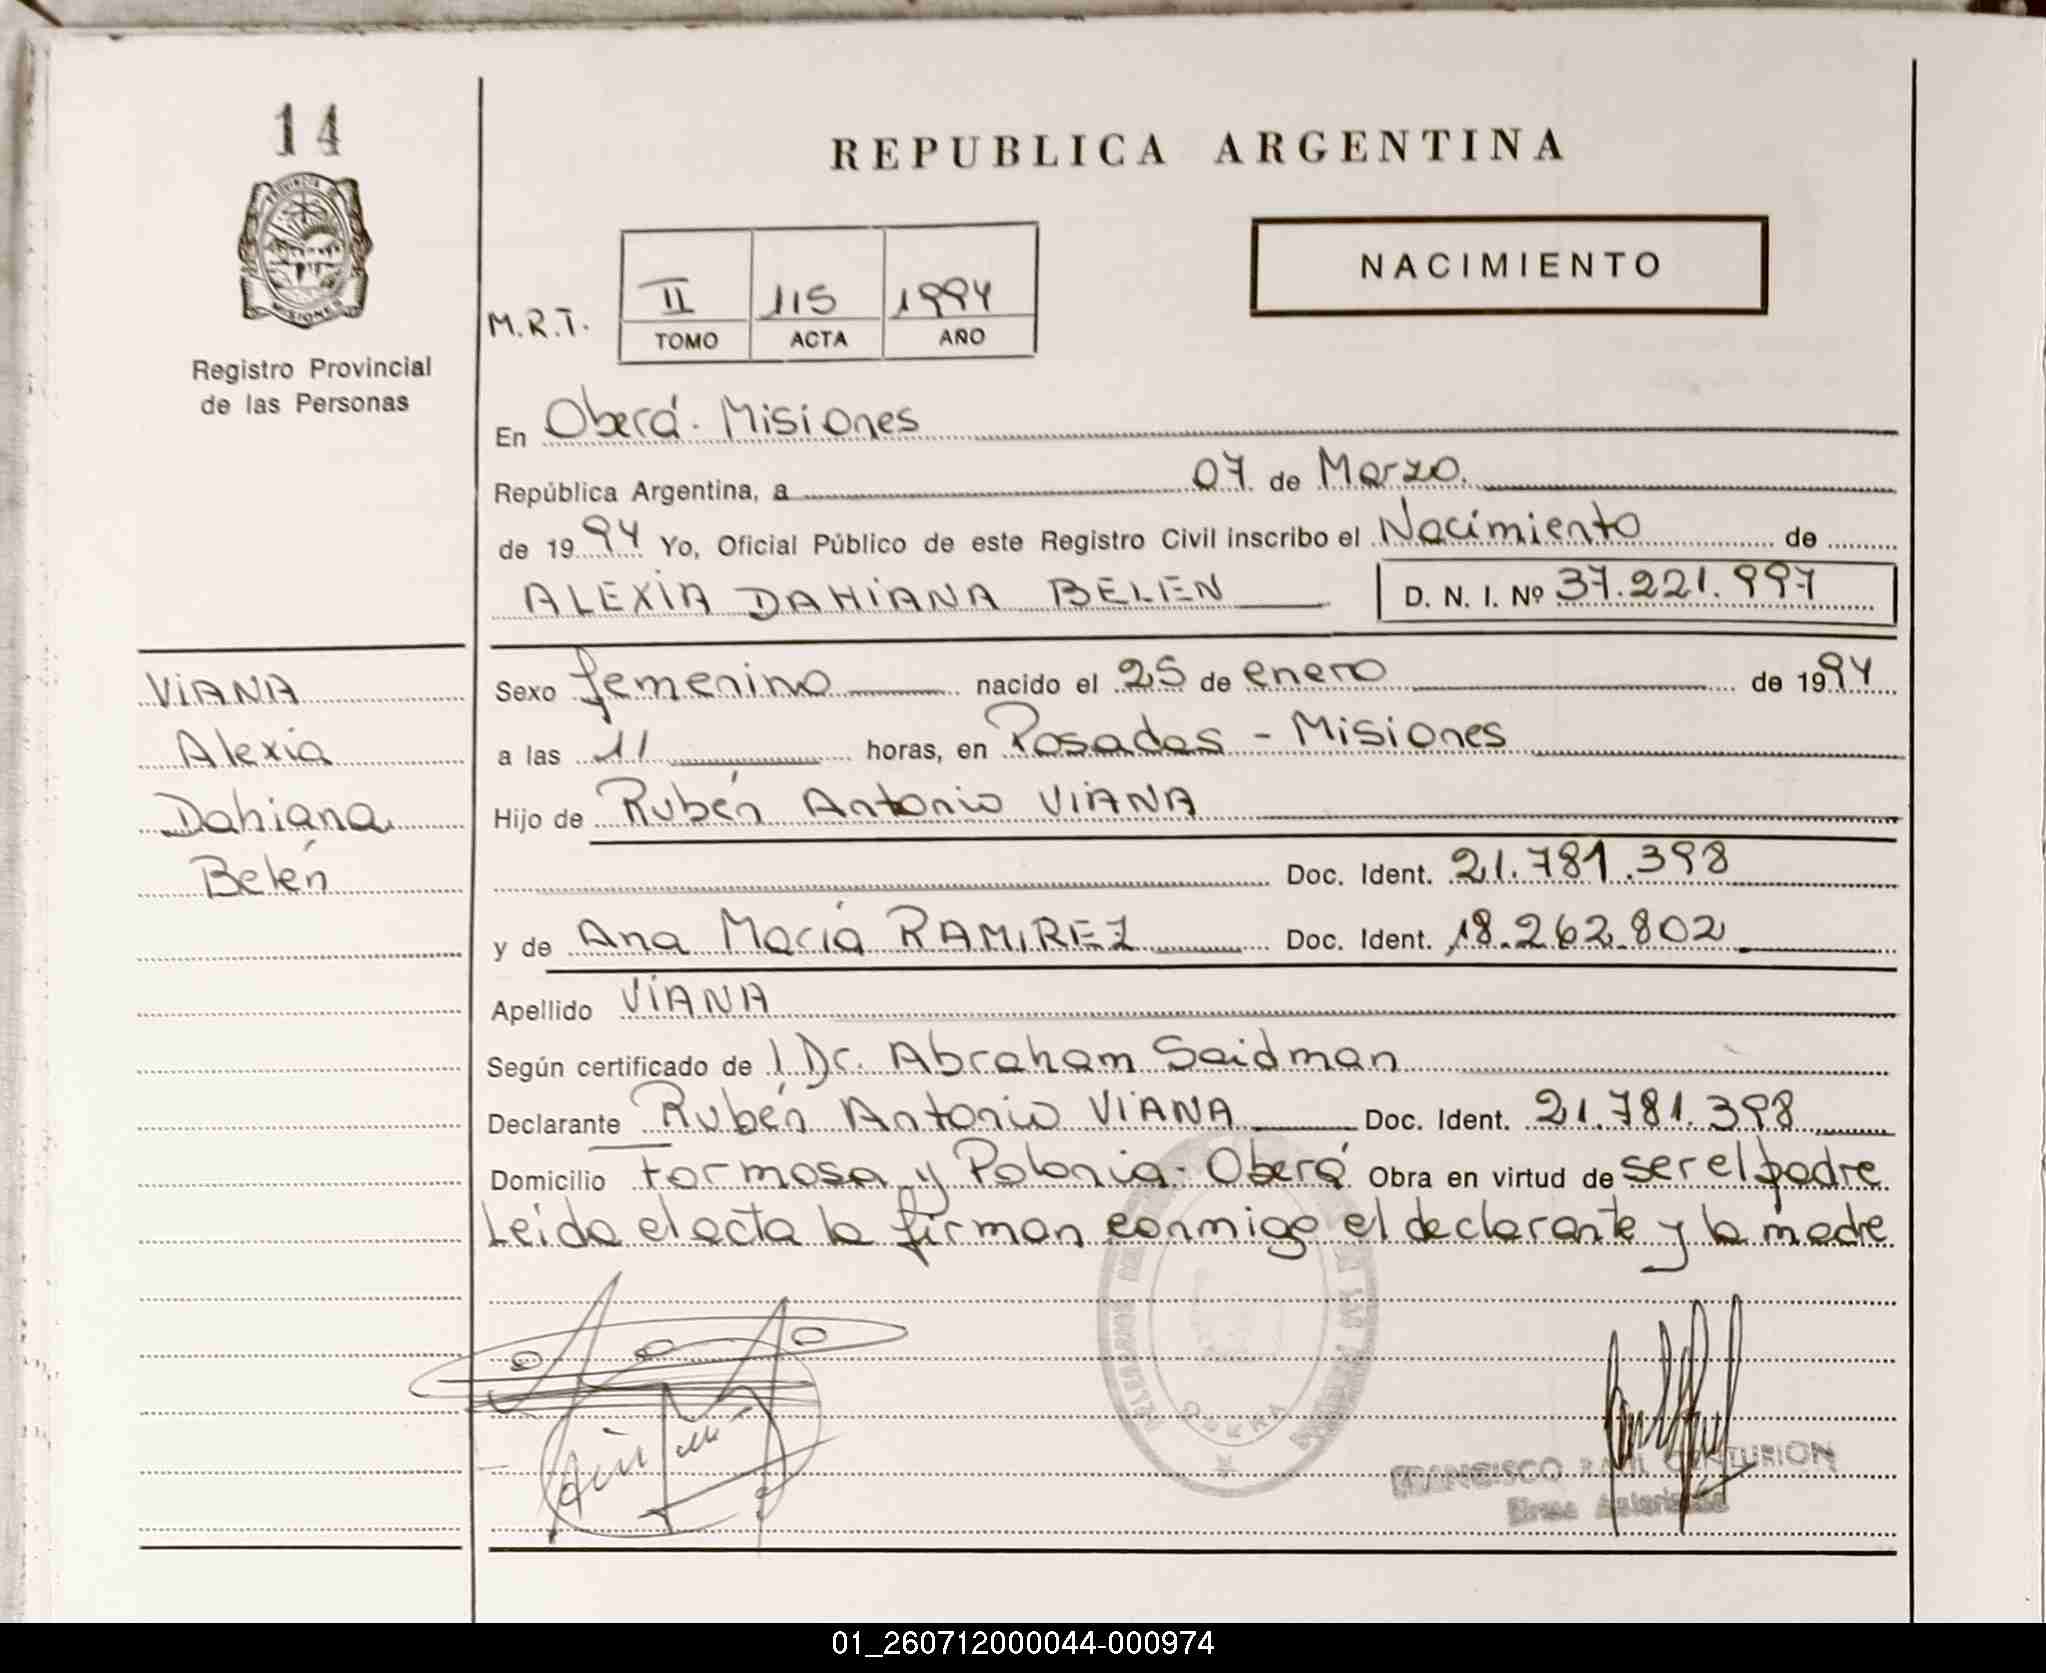 14
REPUBLICA ARGENTINA
PROVINCIA DE
MISIONES
Registro Provincial
de las Personas
NACIMIENTO
M.R.T.
II 115 1994
TOMO ACTA AÑO
En Oberá - Misiones
República Argentina, a 07 de Marzo
de 1994 Yo, Oficial Público de este Registro Civil inscribo el Nacimiento de
ALEXIA DAHIANA BELEN D. N. I. Nº 37.221.997
VIANA
Alexia
Dahiana
Belén
Sexo femenino nacido el 25 de enero de 1994
a las 11 horas, en Posadas - Misiones
Hijo de Rubén Antonio VIANA
Doc. Ident. 21.781.398
y de Ana María RAMIREZ Doc. Ident. 18.262.802
Apellido VIANA
Según certificado de l Dr. Abraham Saidman
Declarante Rubén Antonio VIANA Doc. Ident. 21.781.398
Domicilio Formosa y Polonia - Oberá Obra en virtud de ser el padre
Leida el acta la firman conmigo el declarante y la madre
OBERA
FRANCISCO RAUL CENTURION
Firma Autorizada
01_260712000044-000974